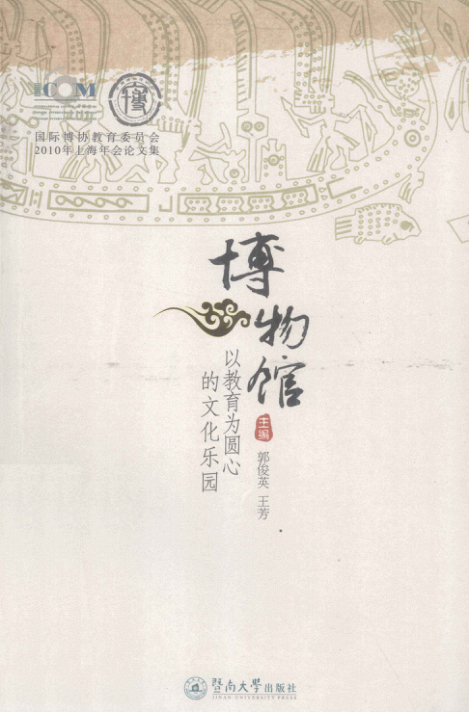 ICOM
博
国际博协教育委员会
2010年上海年会论文集
博物馆
以教育为圆心
的文化乐园
主编
郭俊英 王芳
暨南大学出版社
JINAN UNIVERSITY PRESS